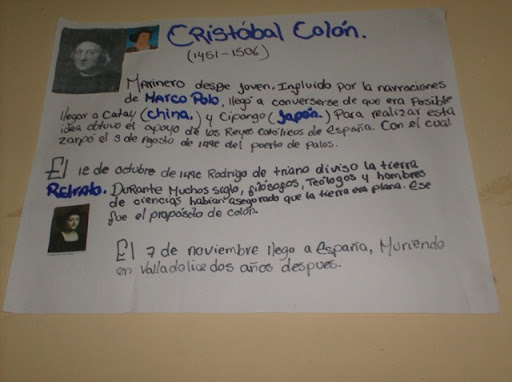 Cristóbal Colón.
(1451-1506)
Marinero desde joven. Influido por la narraciones
de Marco Polo, llegó a converserse de que era Posible
llegar a Catay (China.) y Cipango (Japón.) Para realizar esta
idea obtuvo el apoyo de los Reyes Católicos de España. Con el cual
zarpó el 3 de Agosto de 1492 del puerto de Palos.
El 12 de octubre de 1492 Rodrigo de triano diviso la tierra
Retrato. Durante Muchos siglo, filósofos, Teólogos y hombres
de ciencias habian asegorado que la tierra era plana. Ese
fue el proposito de colón.
El 7 de noviembre llego a España, Muriendo
en Valladolice dos años despues.